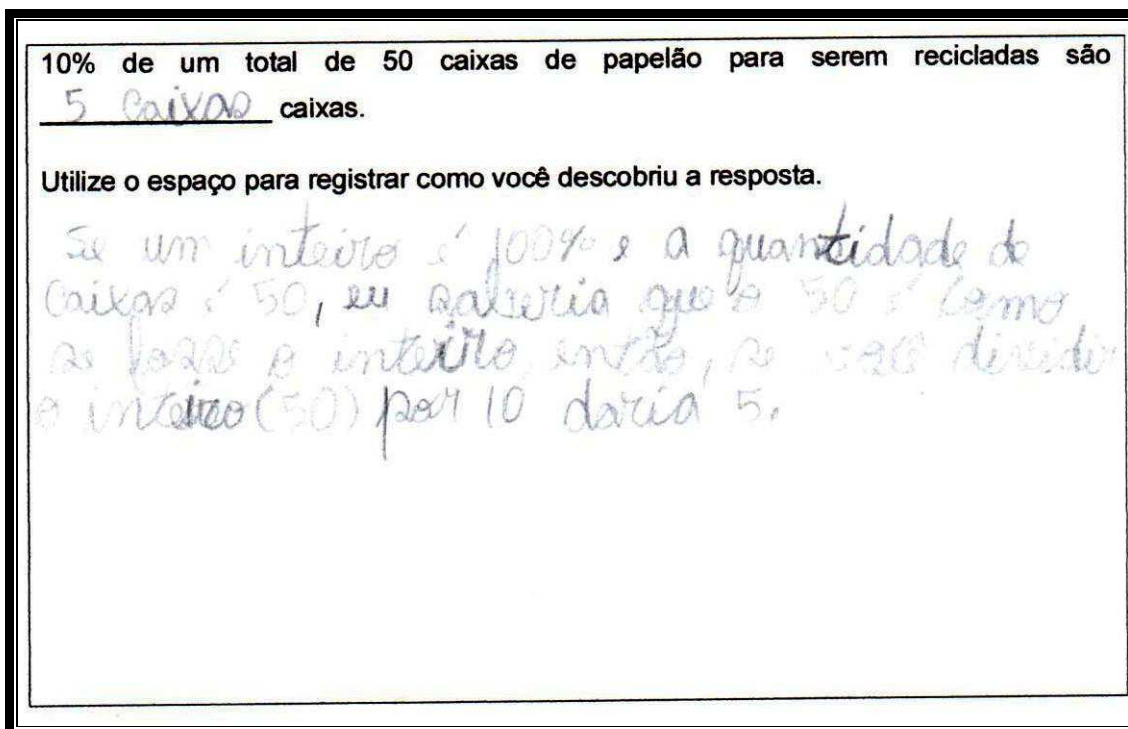 10% de um total de 50 caixas de papelão para serem recicladas são
5 caixas caixas.
Utilize o espaço para registrar como você descobriu a resposta.
Se um inteiro é 100% e a quantidade de
caixas é 50, eu saberia que o 50 é como
se fosse o inteiro então, se você dividir
o inteiro (50) por 10 daria 5.